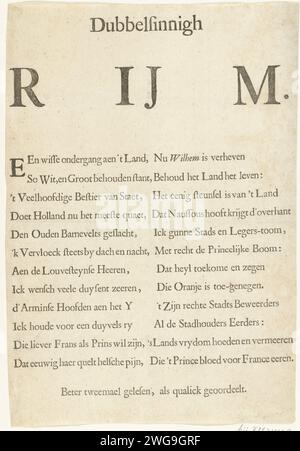 Dubbelsinnigh
R IJ M.
EEn wisse ondergang aen 't Land, Nu Wilhem is verheven
So Wit, en Groot behouden stant, Behoud het Land het leven:
't Veelhoofdige Bestier van Staet, Het eenig steunsel is van 't Land
Doet Holland nu het meeste quaet, Dat Nassous hooft krijgt d'overhant
Den Ouden Barnevelts geslacht, Ick gunne Stads en Legers-toom,
'k Vervloeck steets by dach en nacht, Met recht de Princelijke Boom:
Aen de Louvesteynse Heeren, Dat heyl toekome en zegen
Ick wensch veele duysent zeeren, Die Oranje is toe-genegen.
d'Arminse Hoofden aen het Y 't Zijn rechte Stadts Beweerders
Ick houde voor een duyvels ry Al de Stadhouders Eerders:
Die liever Frans als Prins wil zijn, 'sLands vrydom hoeden en vermeeren
Dat eeuwig haer quelt helsche pijn, Die 't Prince bloed voor France eeren.
Beter tweemael gelesen, als qualick geoordeelt.
alamy
Image ID: 2WG9GRF
www.alamy.com